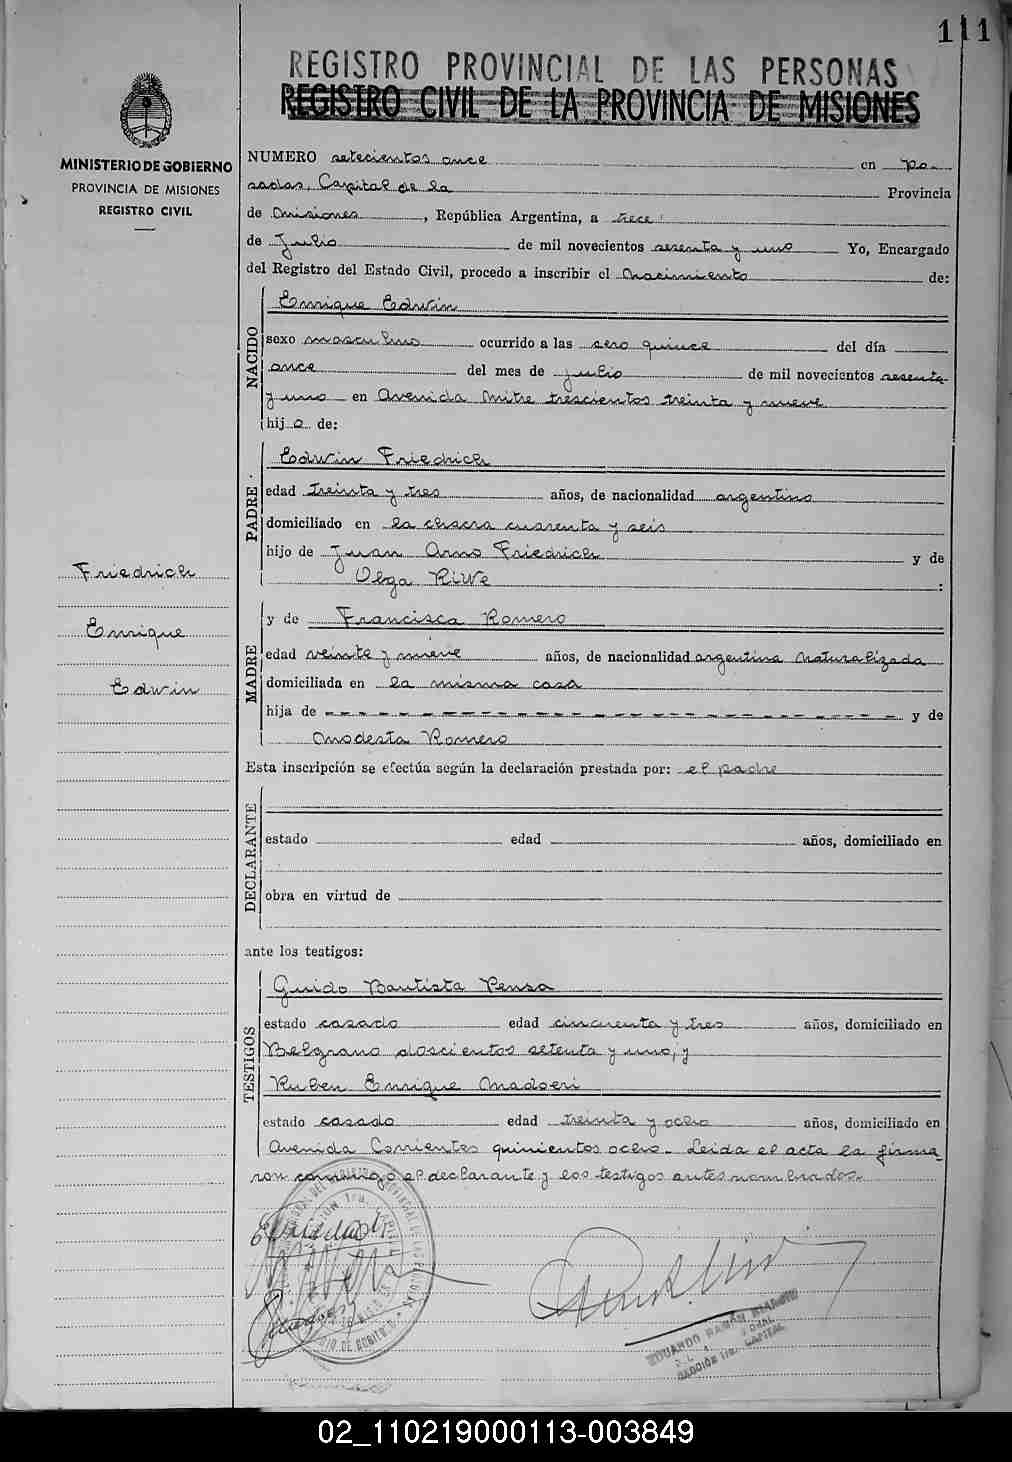 111
REGISTRO PROVINCIAL DE LAS PERSONAS
REGISTRO CIVIL DE LA PROVINCIA DE MISIONES
MINISTERIO DE GOBIERNO
PROVINCIA DE MISIONES
REGISTRO CIVIL
NUMERO setecientos once en Po-
sadas, Capital de la Provincia
de Misiones, República Argentina, a trece
de Julio de mil novecientos sesenta y uno Yo, Encargado
del Registro del Estado Civil, procedo a inscribir el Nacimiento de:
NACIDO
Enrique Edwin
sexo masculino ocurrido a las cero quince del día
once del mes de julio de mil novecientos sesenta
y uno en Avenida Mitre trescientos treinta y nueve
hijo de:
PADRE
Edwin Friedrich
edad treinta y tres años, de nacionalidad argentino
domiciliado en la chacra cuarenta y seis
hijo de Juan Arno Friedrich y de
Olga Riwe :
Friedrich
Enrique
Edwin
MADRE
y de Francisca Romero
edad veinte y nueve años, de nacionalidad argentina naturalizada
domiciliada en la misma casa
hija de - - - - - - - - - - - - - - - - - - - - y de
Modesta Romero
Esta inscripción se efectúa según la declaración prestada por: el padre
DECLARANTE
estado edad años, domiciliado en
obra en virtud de
ante los testigos:
TESTIGOS
Guido Bautista Pensa
estado casado edad cincuenta y tres años, domiciliado en
Belgrano doscientos setenta y uno; y
Ruben Enrique Madoeri
estado casado edad treinta y ocho años, domiciliado en
Avenida Corrientes quinientos ocho. Leida el acta la firma-
ron conmigo el declarante y los testigos antes nombrados.
EDUARDO RAMÓN
CAPITAL
02_110219000113-003849